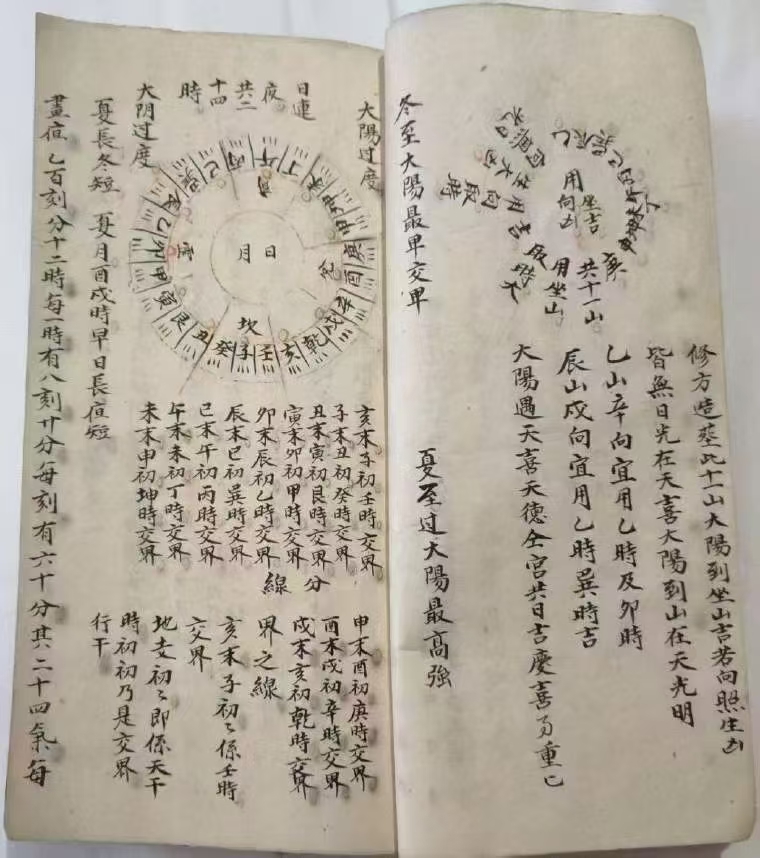 用
坐吉
向凶
共十一山
用坐山
修方造葬此十一山大陽到坐山吉若向照生凶
皆無日光在天喜大陽到山在天光明
乙山辛向宜用乙時及卯時
辰山戍向宜用乙時巽時吉
大陽遇天喜天德仝宮共日吉慶喜为重已
夏至过大陽最高強
冬至大陽最
大陽过度
日連
夜
共二
十四
時
大阴过度
日月
坎
壬子癸丑艮寅甲卯乙辰巽巳丙午丁未坤申庚酉辛戍乾亥
夏長冬短 夏月酉戍時早日長夜短
晝夜乙百刻分十二時每一時有八刻廿分每刻有六十分其二十四氣每
亥末子初壬時交界
子末丑初癸時交界
丑末寅初艮時交界分
寅末卯初甲時交界
卯末辰初乙時交界線
辰末巳初巽時交界
巳末午初丙時交界
午末未初丁時交界
未末申初坤時交界
申末酉初庚時交界
酉末戍初辛時交界
戍末亥初乾時交界
界之線
亥末子初々係壬時
交界
地支初々即係天干
時初初乃是交界
行干